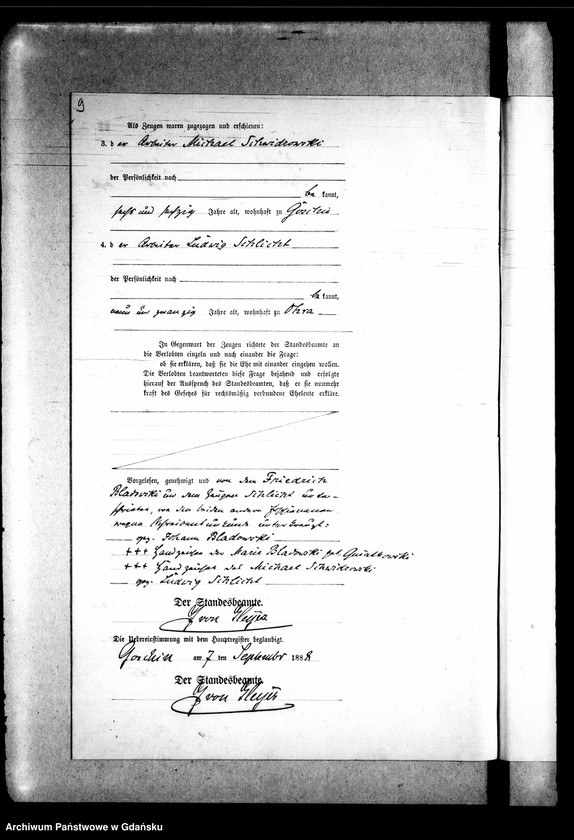 9
Als Zeugen waren zugezogen und erschienen:
3. d er Arbeiter Michael Schwidrowski
der Persönlichkeit nach
be kannt,
sechs und sechzig Jahre alt, wohnhaft zu
4. d er Arbeiter Ludwig Schlicht
der Persönlichkeit nach
be kannt,
neun und zwanzig Jahre alt, wohnhaft zu Ohra
In Gegenwart der Zeugen richtete der Standesbeamte an
die Verlobten einzeln und nach einander die Frage:
ob sie erklären, daß sie die Ehe mit einander eingehen wollen.
Die Verlobten beantworteten diese Frage bejahend und erfolgte
hierauf der Ausspruch des Standesbeamten, daß er sie nunmehr
kraft des Gesetzes für rechtsmäßig verbundene Eheleute erkläre.
Vorgelesen, genehmigt und von dem Friedrich
Bladowski und dem Zeugen Schlicht unter-
schrieben, von den beiden anderen
wegen unter kreuzt:
gez. Johann Bladowski
+++ Handzeichen der Marie Bladowski geb.
+++ Handzeichen des Michael Schwidrowski
gez. Ludwig Schlicht
Der Standesbeamte.
von Heyer
Die Uebereinstimmung mit dem Hauptregister beglaubigt.
am 7 ten September 1888
Der Standesbeamte.
von Heyer
Archiwum Państwowe w Gdańsku